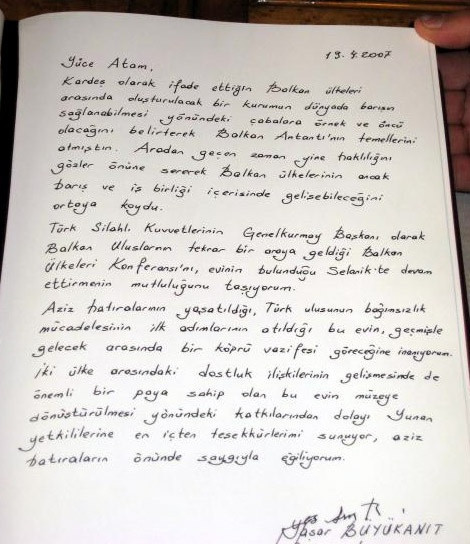 19.4.2007
Yüce Atam,
Kardeş olarak ifade ettiğin Balkan ülkeleri
arasında oluşturulacak bir kurumun dünyada barışın
sağlanabilmesi yönündeki çabalara örnek ve öncü
olacağını belirterek Balkan Antantı'nın temellerini
atmıştın. Aradan geçen zaman yine haklılığını
gözler önüne sererek Balkan ülkelerinin ancak
barış ve iş birliği içerisinde gelişebileceğini
ortaya koydu.
Türk Silahlı Kuvvetlerinin Genelkurmay Başkanı olarak
Balkan Uluslarının tekrar bir araya geldiği Balkan
Ülkeleri Konferansı'nı, evinin bulunduğu Selanik'te devam
ettirmenin mutluluğunu taşıyorum.
Aziz hatıralarının yaşatıldığı, Türk ulusunun bağımsızlık
mücadelesinin ilk adımlarının atıldığı bu evin, geçmişle
gelecek arasında bir köprü vazifesi göreceğine inanıyorum.
İki ülke arasındaki dostluk ilişkilerinin gelişmesinde de
önemli bir paya sahip olan bu evin müzeye
dönüştürülmesi yönündeki katkılarından dolayı Yunan
yetkililerine en içten teşekkürlerimi sunuyor, aziz
hatıraların önünde saygıyla eğiliyorum.
Yaşar BÜYÜKANIT